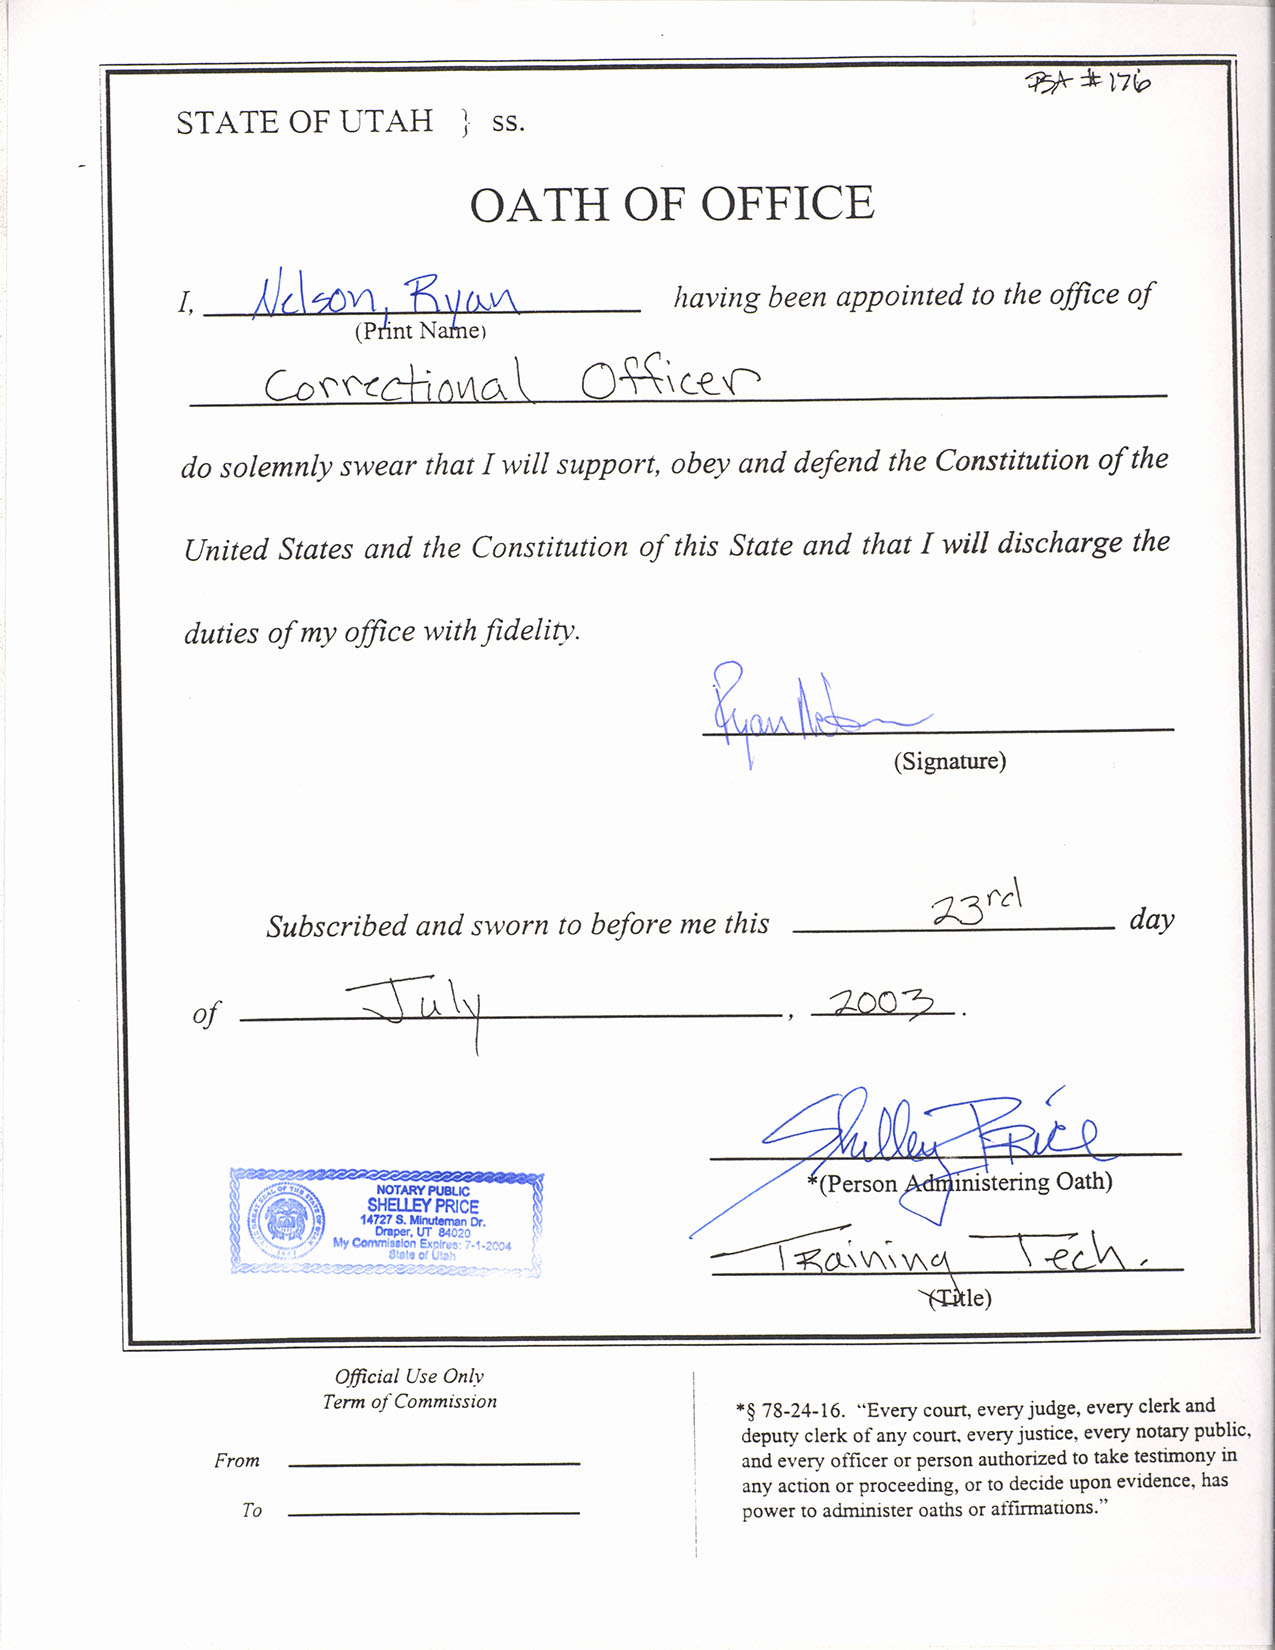 BA # 176
STATE OF UTAH } ss.
OATH OF OFFICE
I, Nelson, Ryan having been appointed to the office of
(Print Name)
Correctional Officer
do solemnly swear that I will support, obey and defend the Constitution of the
United States and the Constitution of this State and that I will discharge the
duties of my office with fidelity.
Ryan Nelson
(Signature)
Subscribed and sworn to before me this 23rd day
of July, 2003.
Shelley Price
*(Person Administering Oath)
NOTARY PUBLIC
SHELLEY PRICE
14727 S. Minuteman Dr.
Draper, UT 84020
My Commission Expires: 7-1-2004
State of Utah
Training Tech.
(Title)
Official Use Only
Term of Commission
From
To
*§ 78-24-16. “Every court, every judge, every clerk and
deputy clerk of any court, every justice, every notary public,
and every officer or person authorized to take testimony in
any action or proceeding, or to decide upon evidence, has
power to administer oaths or affirmations.”